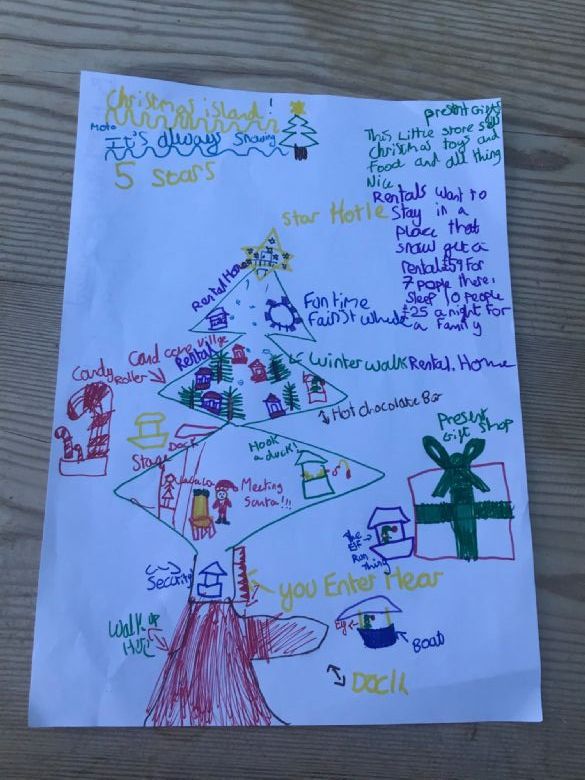 Christmas island!
Moto
It's alway snowing
5 stars
present Gifts
This Little store sells
christmas toys and
Food and all thing
Nice
Rentals want to
Stay in a
place that
snow get a
rental £59 For
7 people there,
sleep 10 people
£25 a night for
a family
Star Hotle
Rental Home
Fun time
Fairst wheele
Cand cane village
Rental
Candy
Roller
Winter walk
Rental. Home
Hot chocolate Bar
Dock
Stage
Hook
a duck!
Meeting
Santa!!!
Present
Gift shop
The
Elf
Run
thing
Security
you Enter Hear
Walk up
Boat
Dock